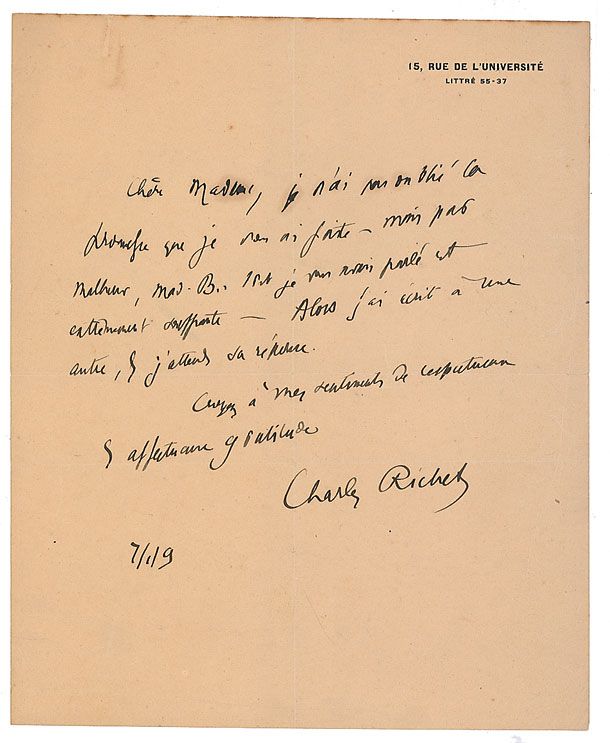 15, RUE DE L'UNIVERSITÉ
LITTRÉ 55-37
Chère Madame, je n'ai pas oublié la
promesse que je vous ai faite – mais par
malheur, Mad. B.. dont je vous avais parlé est
extrêmement souffrante – Alors j'ai écrit à une
autre, & j'attends sa réponse.
Croyez à mes sentiments de respectueuse
& affectueuse gratitude
Charles Richet
7/1/9